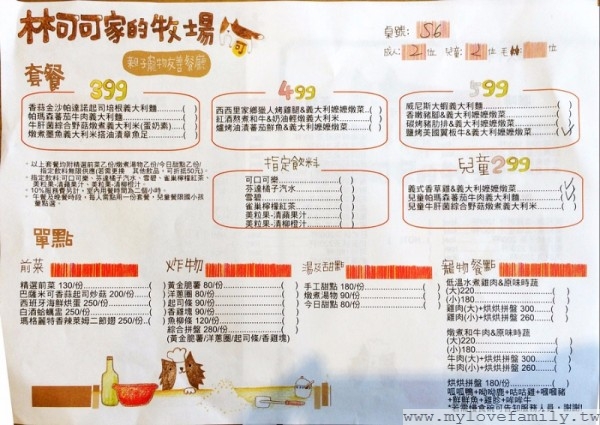 林可可家的牧場
親子寵物友善餐廳
桌號: S6
成人: 2 位 兒童: 2 位 毛
套餐
399
香菇金沙帕達諾起司培根義大利麵( )
帕瑪森蕃茄牛肉義大利麵( )
牛肝菌綜合野菇燉煮義大利米(蛋奶素)( )
燉煮墨魚義大利米搭油漬章魚足( )
499
西西里家鄉獵人烤雞腿&義大利嬤嬤燉菜( )
紅酒熬煮和牛&奶油輕燉義大利米( )
爐烤油漬蕃茄鮮魚&義大利嬤嬤燉菜( )
599
威尼斯大蝦義大利麵( )
香嫩豬腳&義大利嬤嬤燉菜( )
碳烤豬肋排&義大利嬤嬤燉菜( )
鹽烤美國翼板牛&義大利嬤嬤燉菜(✓)
*以上套餐均附精選前菜乙份/燉煮湯物乙份/今日甜點乙份/
指定飲料無限供應(若需更換 其他飲品,可折抵50元)
*指定飲料:可口可樂、芬達橘子汽水、雪碧、雀巢檸檬紅茶、
美粒果-清蘋果汁、美粒果-清柳橙汁。
*10%服務費另計,室內用餐時間為二個小時。
*午餐及晚餐時段,每人需點用一份套餐,兒童餐限國小孩
童點選。
指定飲料
可口可樂( )
芬達橘子汽水( )
雪碧( )
雀巢檸檬紅茶( )
美粒果-清蘋果汁( )
美粒果-清柳橙汁( )
兒童299
義式香草雞&義大利嬤嬤燉菜(✓)
兒童帕瑪森蕃茄牛肉義大利麵(✓)
兒童牛肝菌綜合野菇燉煮義大利米( )
單點
前菜
精選前菜 130/份
巴薩米可香菇起司炒菇 200/份
西班牙海鮮烘蛋 250/份
白酒蛤蠣盅 250/份
瑪格麗特香辣萊姆二節翅 250/份
炸物
黃金脆薯 80/份
洋蔥圈 80/份
起司條 90/份
香雞塊 90/份
魚柳條 120/份
綜合拼盤 280/份
(黃金脆薯/洋蔥圈/起司條/香雞塊)
湯及甜點
手工甜點 180/份
燉煮湯物 90/份
今日甜點 80/份
寵物餐點
低溫水煮雞肉&原味時蔬
(大)220
(小)180
雞肉(大)+烘烘拼盤 300
雞肉(小)+烘烘拼盤 260
燉煮和牛肉&原味時蔬
(大)220
(小)180
牛肉(大)+烘烘拼盤 300
牛肉(小)+烘烘拼盤 260
烘烘拼盤 180/份
呱呱鴨+呦呦鹿+咕咕雞+嘓嘓豬
+鮮鮮魚+雞胗+哞哞牛
www.mylovefamily.tw